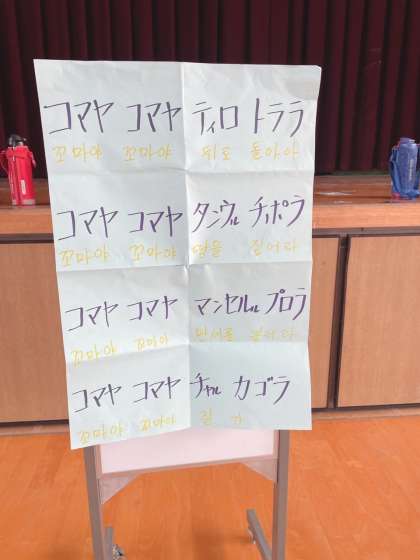 コマヤ コマヤ ティロ トララ
꼬마야 꼬마야 뒤로 돌아라
コマヤ コマヤ タンウル チポラ
꼬마야 꼬마야 땅을 짚어라
コマヤ コマヤ マンセルル プロラ
꼬마야 꼬마야 만세를
コマヤ コマヤ チャル カゴラ
꼬마야 꼬마야 잘 가